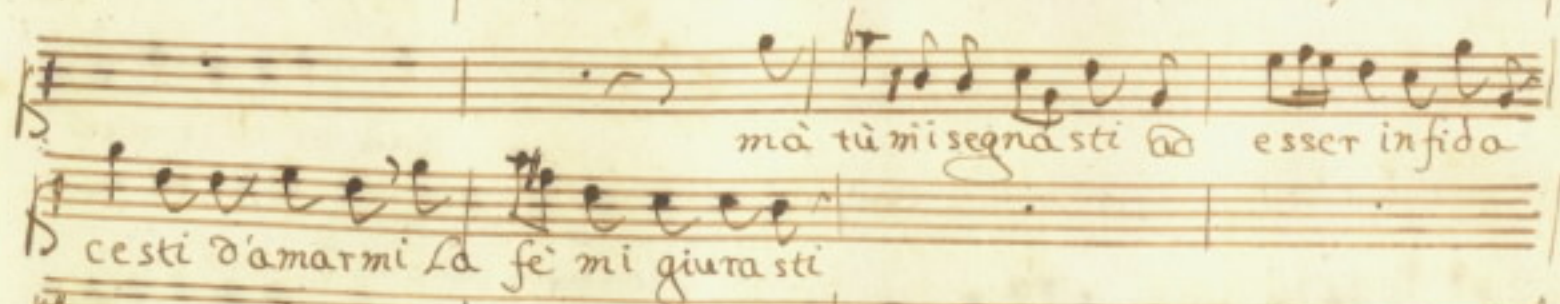 mà tù mi segnasti ad esser infida
cesti d'amarmi La fè mi giurasti